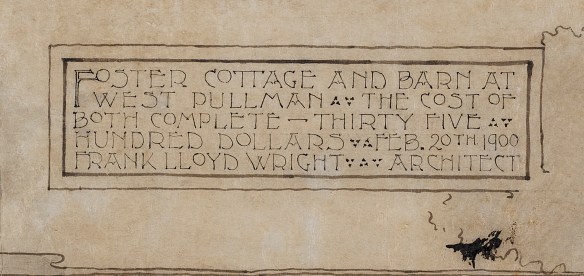 FOSTER COTTAGE AND BARN AT
WEST PULLMAN THE COST OF
BOTH COMPLETE — THIRTY FIVE
HUNDRED DOLLARS FEB. 20TH, 1900
FRANK LLOYD WRIGHT ARCHITECT